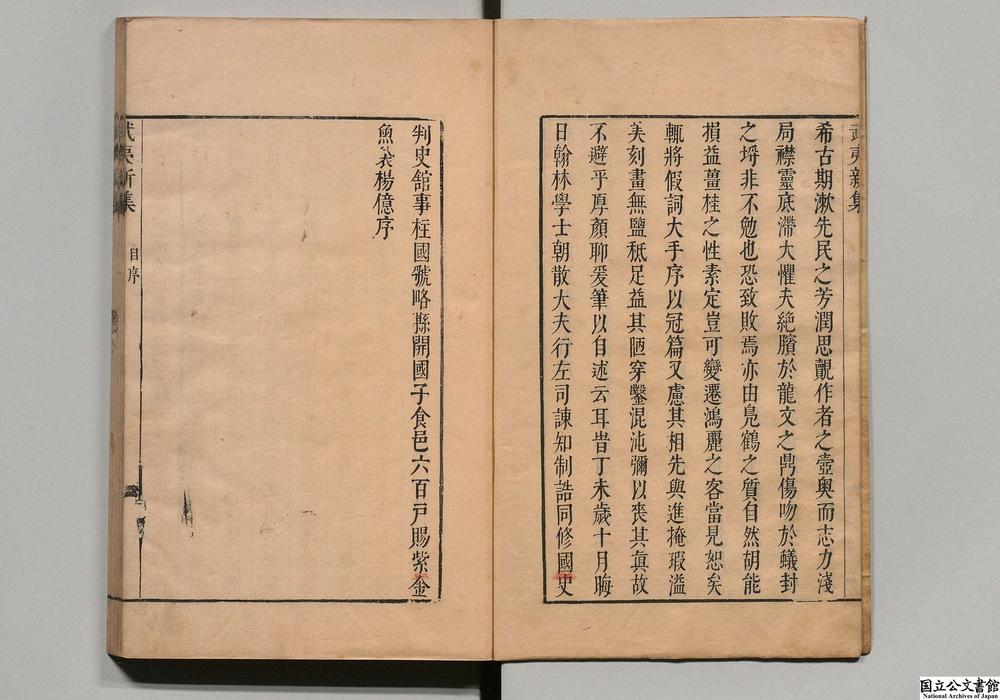 武夷新集
希古期漱先民之芳潤思覿作者之壼奧而志力淺
局襟靈底滯大懼夫絶臏於龍文之鼎傷吻於蟻封
之埒非不勉也恐致敗焉亦由凫鶴之質自然胡能
損益薑桂之性素定豈可變遷鴻麗之客當見恕矣
輒將假詞大手序以冠篇又慮其相先與進掩瑕溢
美刻畫無鹽秖足益其陋穿鑿混沌彌以喪其眞故
不避乎厚顏聊爰筆以自述云耳旹丁未歲十月晦
日翰林學士朝散大夫行左司諫知制誥同修國史
判史舘事柱國虢略縣開國子食邑六百戸賜紫金
魚袋楊億序
武夷新集
自序
国立公文書館
National Archives of Japan